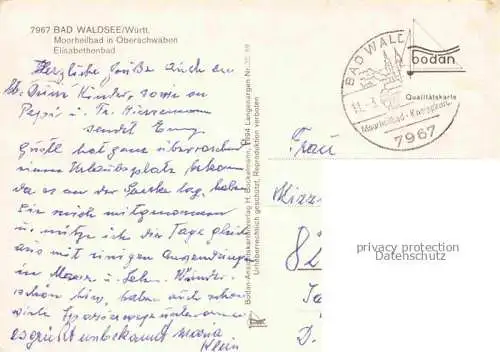 7967 BAD WALDSEE/Württ.
Moorheilbad in Oberschwaben
Elisabethenbad
Herzliche Grüße auch an
Kinder, sowie an
u. Fr.
sendet
Gustl hat ganz überraschend
einen Urlaubsplatz bekom
da es an der Strecke lag, haben
Sie mich mitgenommen
u. nütze ich die Tage gleich
aus mit einigen Anwendungen
in Moor u. Wunder-
schön hier, haben auch schon
viele Spaziergänge unternommen
es grüßt unbekannt Maria
Klein
Bodan-Ansichtskartenverlag H. Bockelmann, 7994 Langenargen Nr.
Urheberrechtlich geschützt, Reproduktion verboten
BAD WALD
Moorheilbad - Kneippkur
7967
bodan
Qualitätskarte
Frau
Mizz
82
D.
privacy protection
Datenschutz